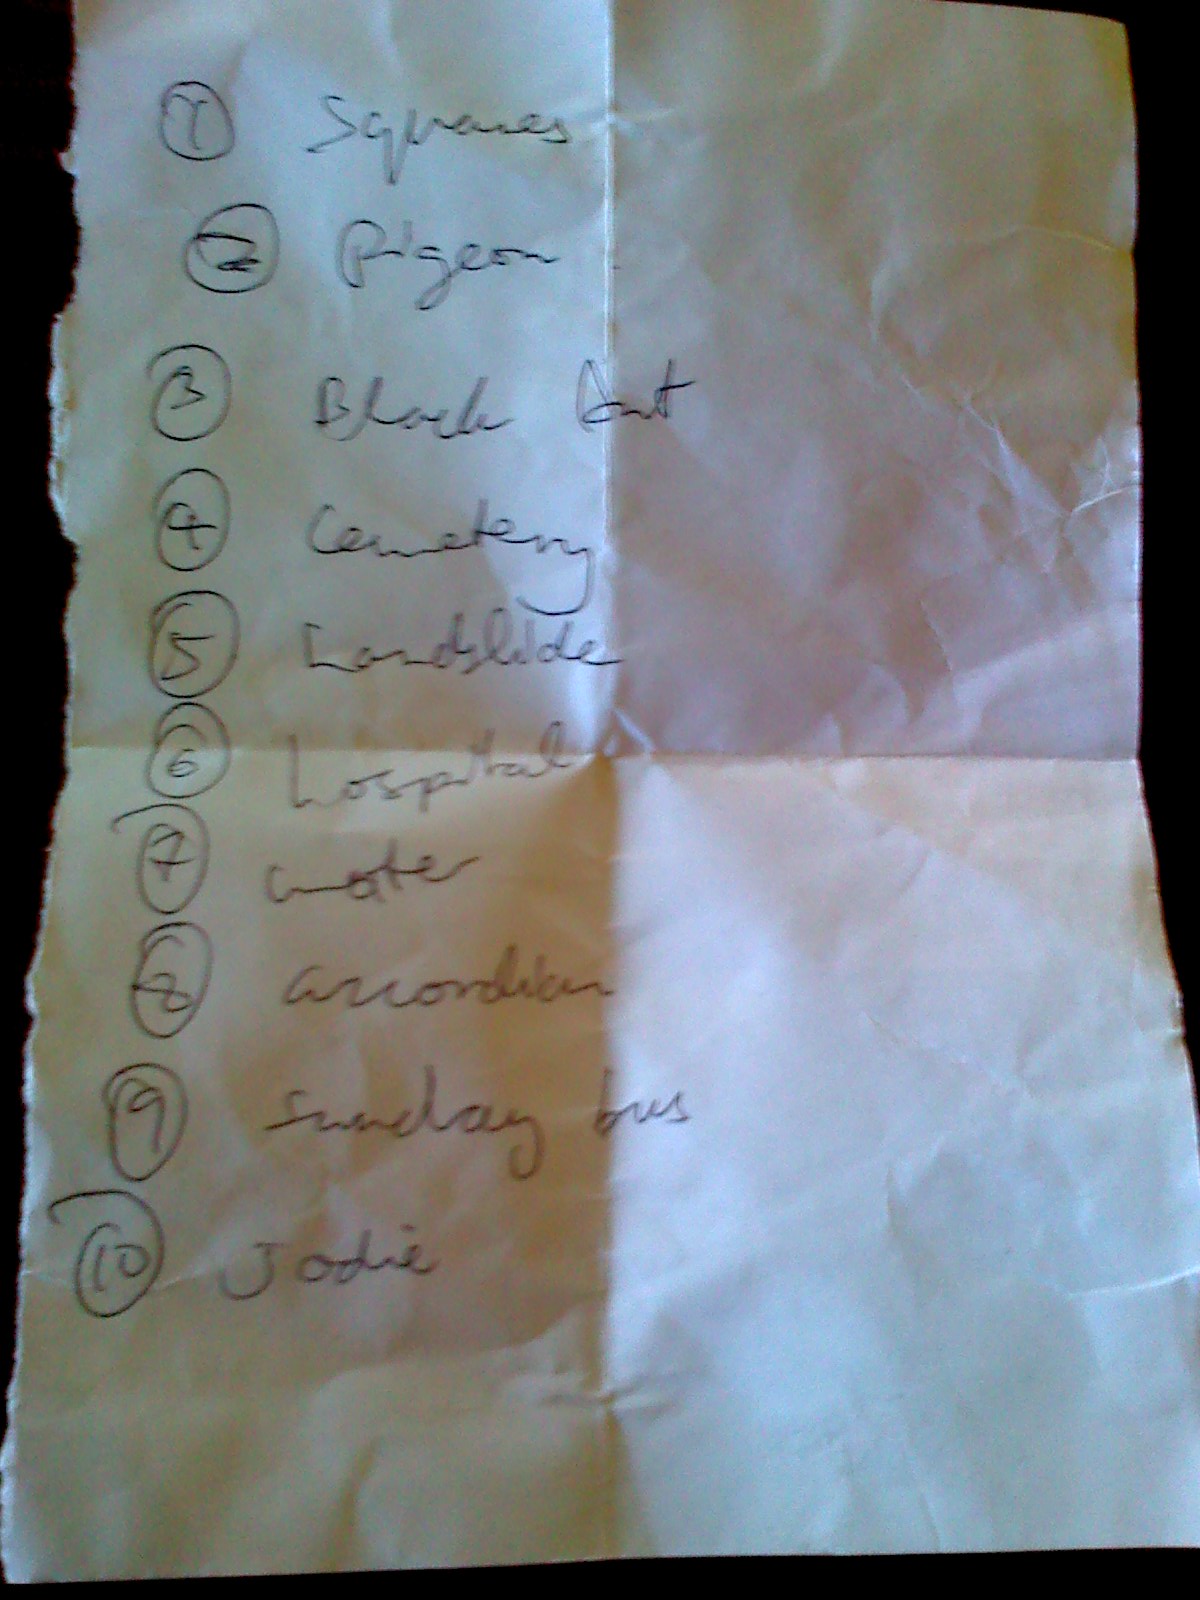 1 Squares
2 Pigeon
3 Black Ant
4 Cemetery
5 Landslide
6 hospital
7 water
8 accordian
9 Sunday bus
10 Jodie